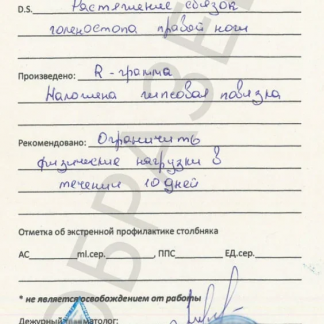 D.S. Растяжение связок
голеностопа правой ноги
Произведено: R-грамма
Наложена гипсовая повязка
Рекомендовано: Ограничить
физические нагрузки в
течении 10 дней
Отметка об экстренной профилактике столбняка
АС________ml.сер.________, ППС________ЕД.сер.________
* не является освобождением от работы
Дежурный травматолог:
ОБРАЗЕЦ